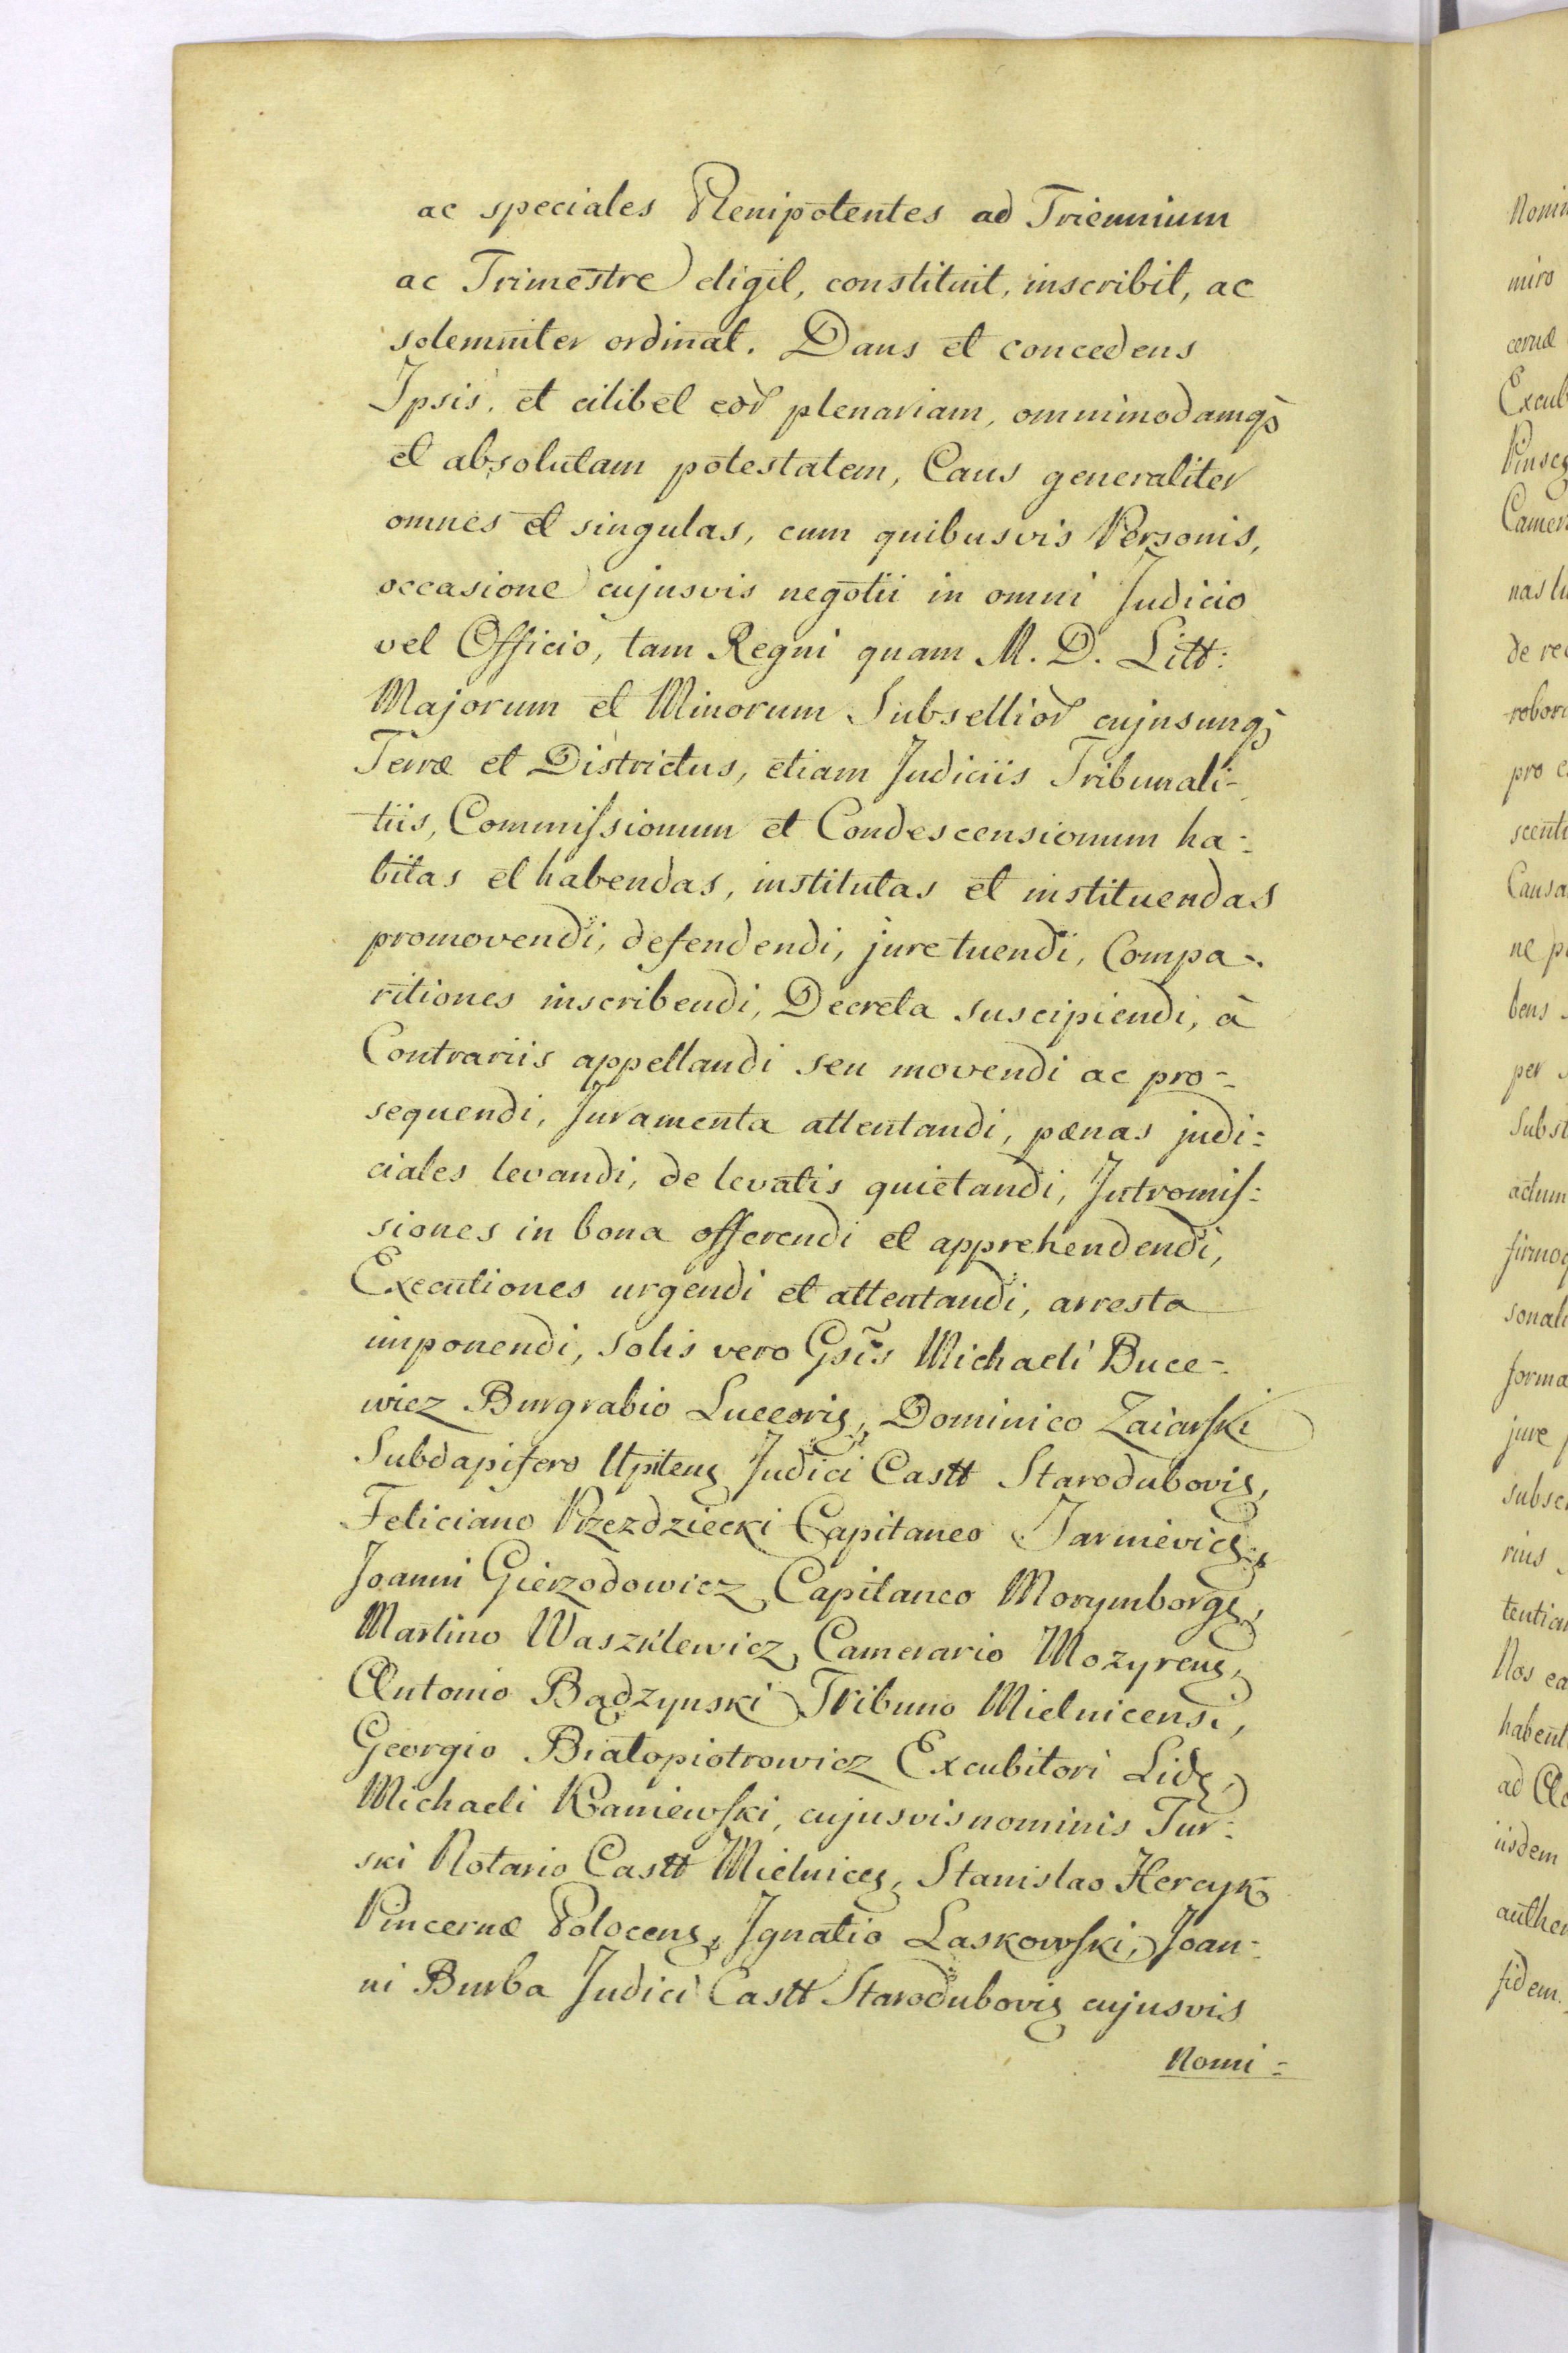 ac speciales Plenipotentes ad Triennium
ac Trimestre eligit, constituit, inscribit, ac
solemniter ordinat. Dans et concedens
Ipsis, et cilibet eor plenariam, omnimodamq3
et absolutam potestatem, Caus generaliter
omnes et singulas, cum quibusvis Personis,
occasione cujusvis negotii in omni Judicio
vel Officio, tam Regni quam M. D. Litt:
Majorum et Minorum Subsellior cujusunq3
Terræ et Districtus, etiam Judiciis Tribunali-
tiis, Commiſsionum et Condescensionum ha-
bitas et habendas, institutas et instituendas
promovendi, defendendi, jure tuendi, Compa-
ritiones inscribendi, Decreta suscipiendi, à
Contrariis appellandi seu movendi ac pro-
sequendi, Juramenta attentandi, pænas judi:
ciales levandi, de levatis quietandi, Intromiſ:
siones in bona offerendi et apprehendendi,
Executiones urgendi et attentandi, arresta
imponendi, solis vero Gsis Michaeli Buce-
wicz Burgrabio Luceoris, Dominico Zaiarſki
Subdapifero Upitens Judici Castt Starodubovis,
Feliciano Przezdziecki Capitaneo Tarnievics,
Joanni Gierzodowicz Capitaneo Morymborgs,
Martino Waszklewicz Camerario Mozyrens,
Antonio Bądzynski Tribuno Mielnicensi,
Georgio Białopiotrowicz Excubitori Lids,
Michaeli Kaniewſki, cujusvis nominis Tur:
ski Notario Castt Mielnices, Stanislao Hercyk
Pincernæ Polocens, Ignatio Laskowſki, Joan-
ni Burba Judici Castt Starodubovis cujusvis
Nomi:
miro
de
pro
Causa
per
jure
Nos
ad
iisdem
fidem.